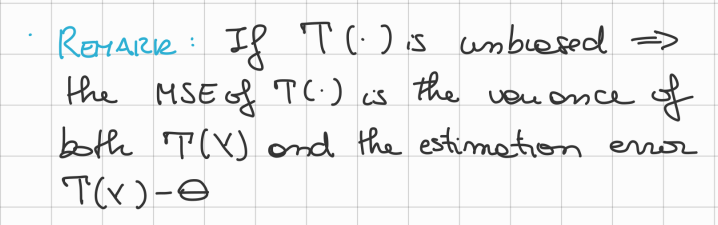 · REMARK: If T(·) is unbiased ⇒
the MSE of T(·) is the variance of
both T(Y) and the estimation error
T(Y)-Θ